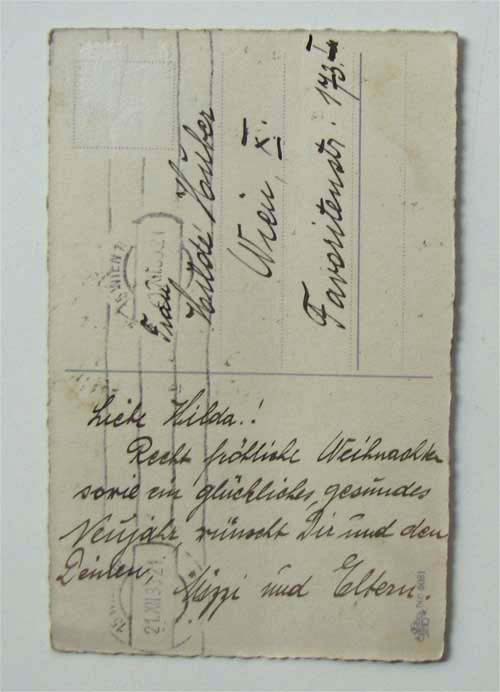 Frau
Hilde Huber
Wien, X.
Favoritenstr. 173.
Liebe Hilda!
Recht fröhliche Weihnachten
sowie ein glückliches, gesundes
Neujahr wünscht Dir und den
Deinen,
Mizzi und Eltern.
WIEN
21.XII.33 21